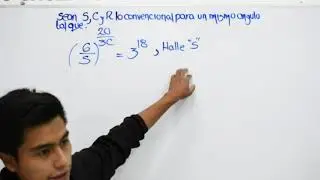 Sean S, C y R lo convencional para un mismo angulo
tal que:
(6/S)^(20/3C) = 3^18 , Halle "S"